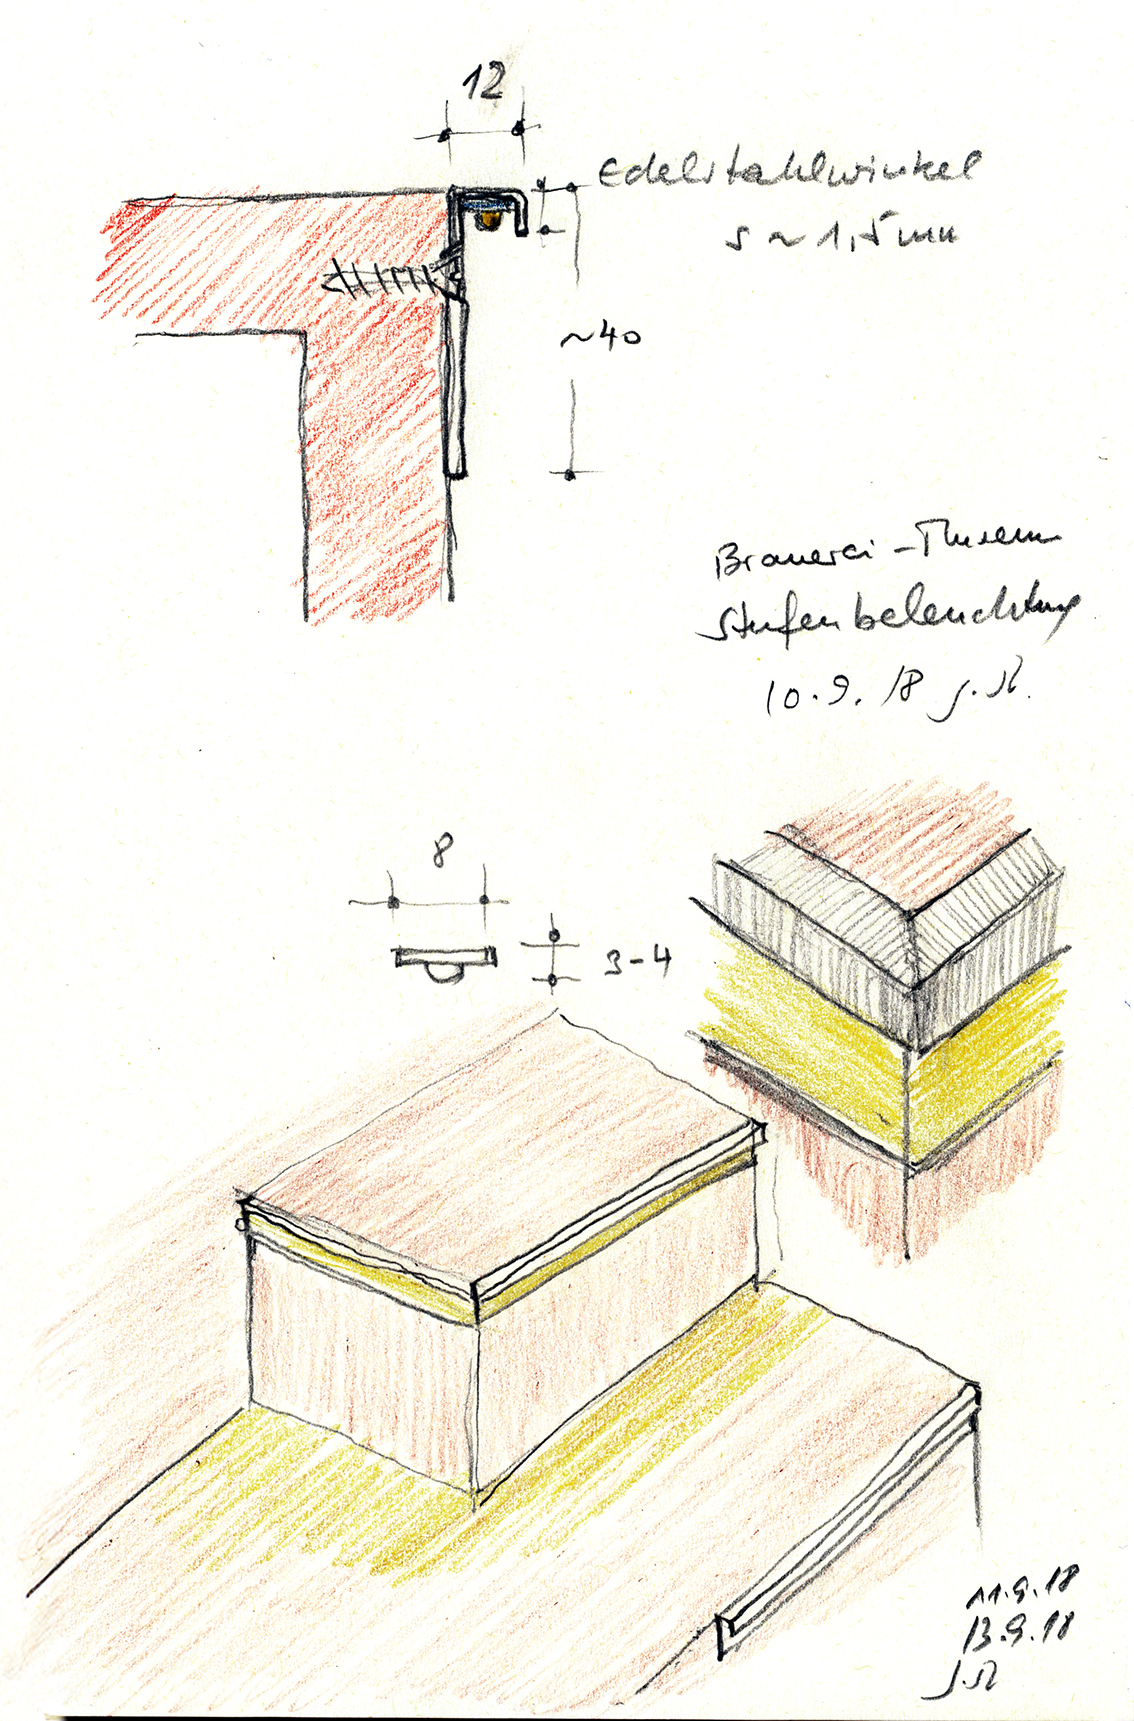 12
Edelstahlwinkel
s ~ 1,5 mm
~40
Brauerei - Museum
Stufenbeleuchtung
10.9.18 J.R.
8
3-4
11.9.18
13.9.18
J.R